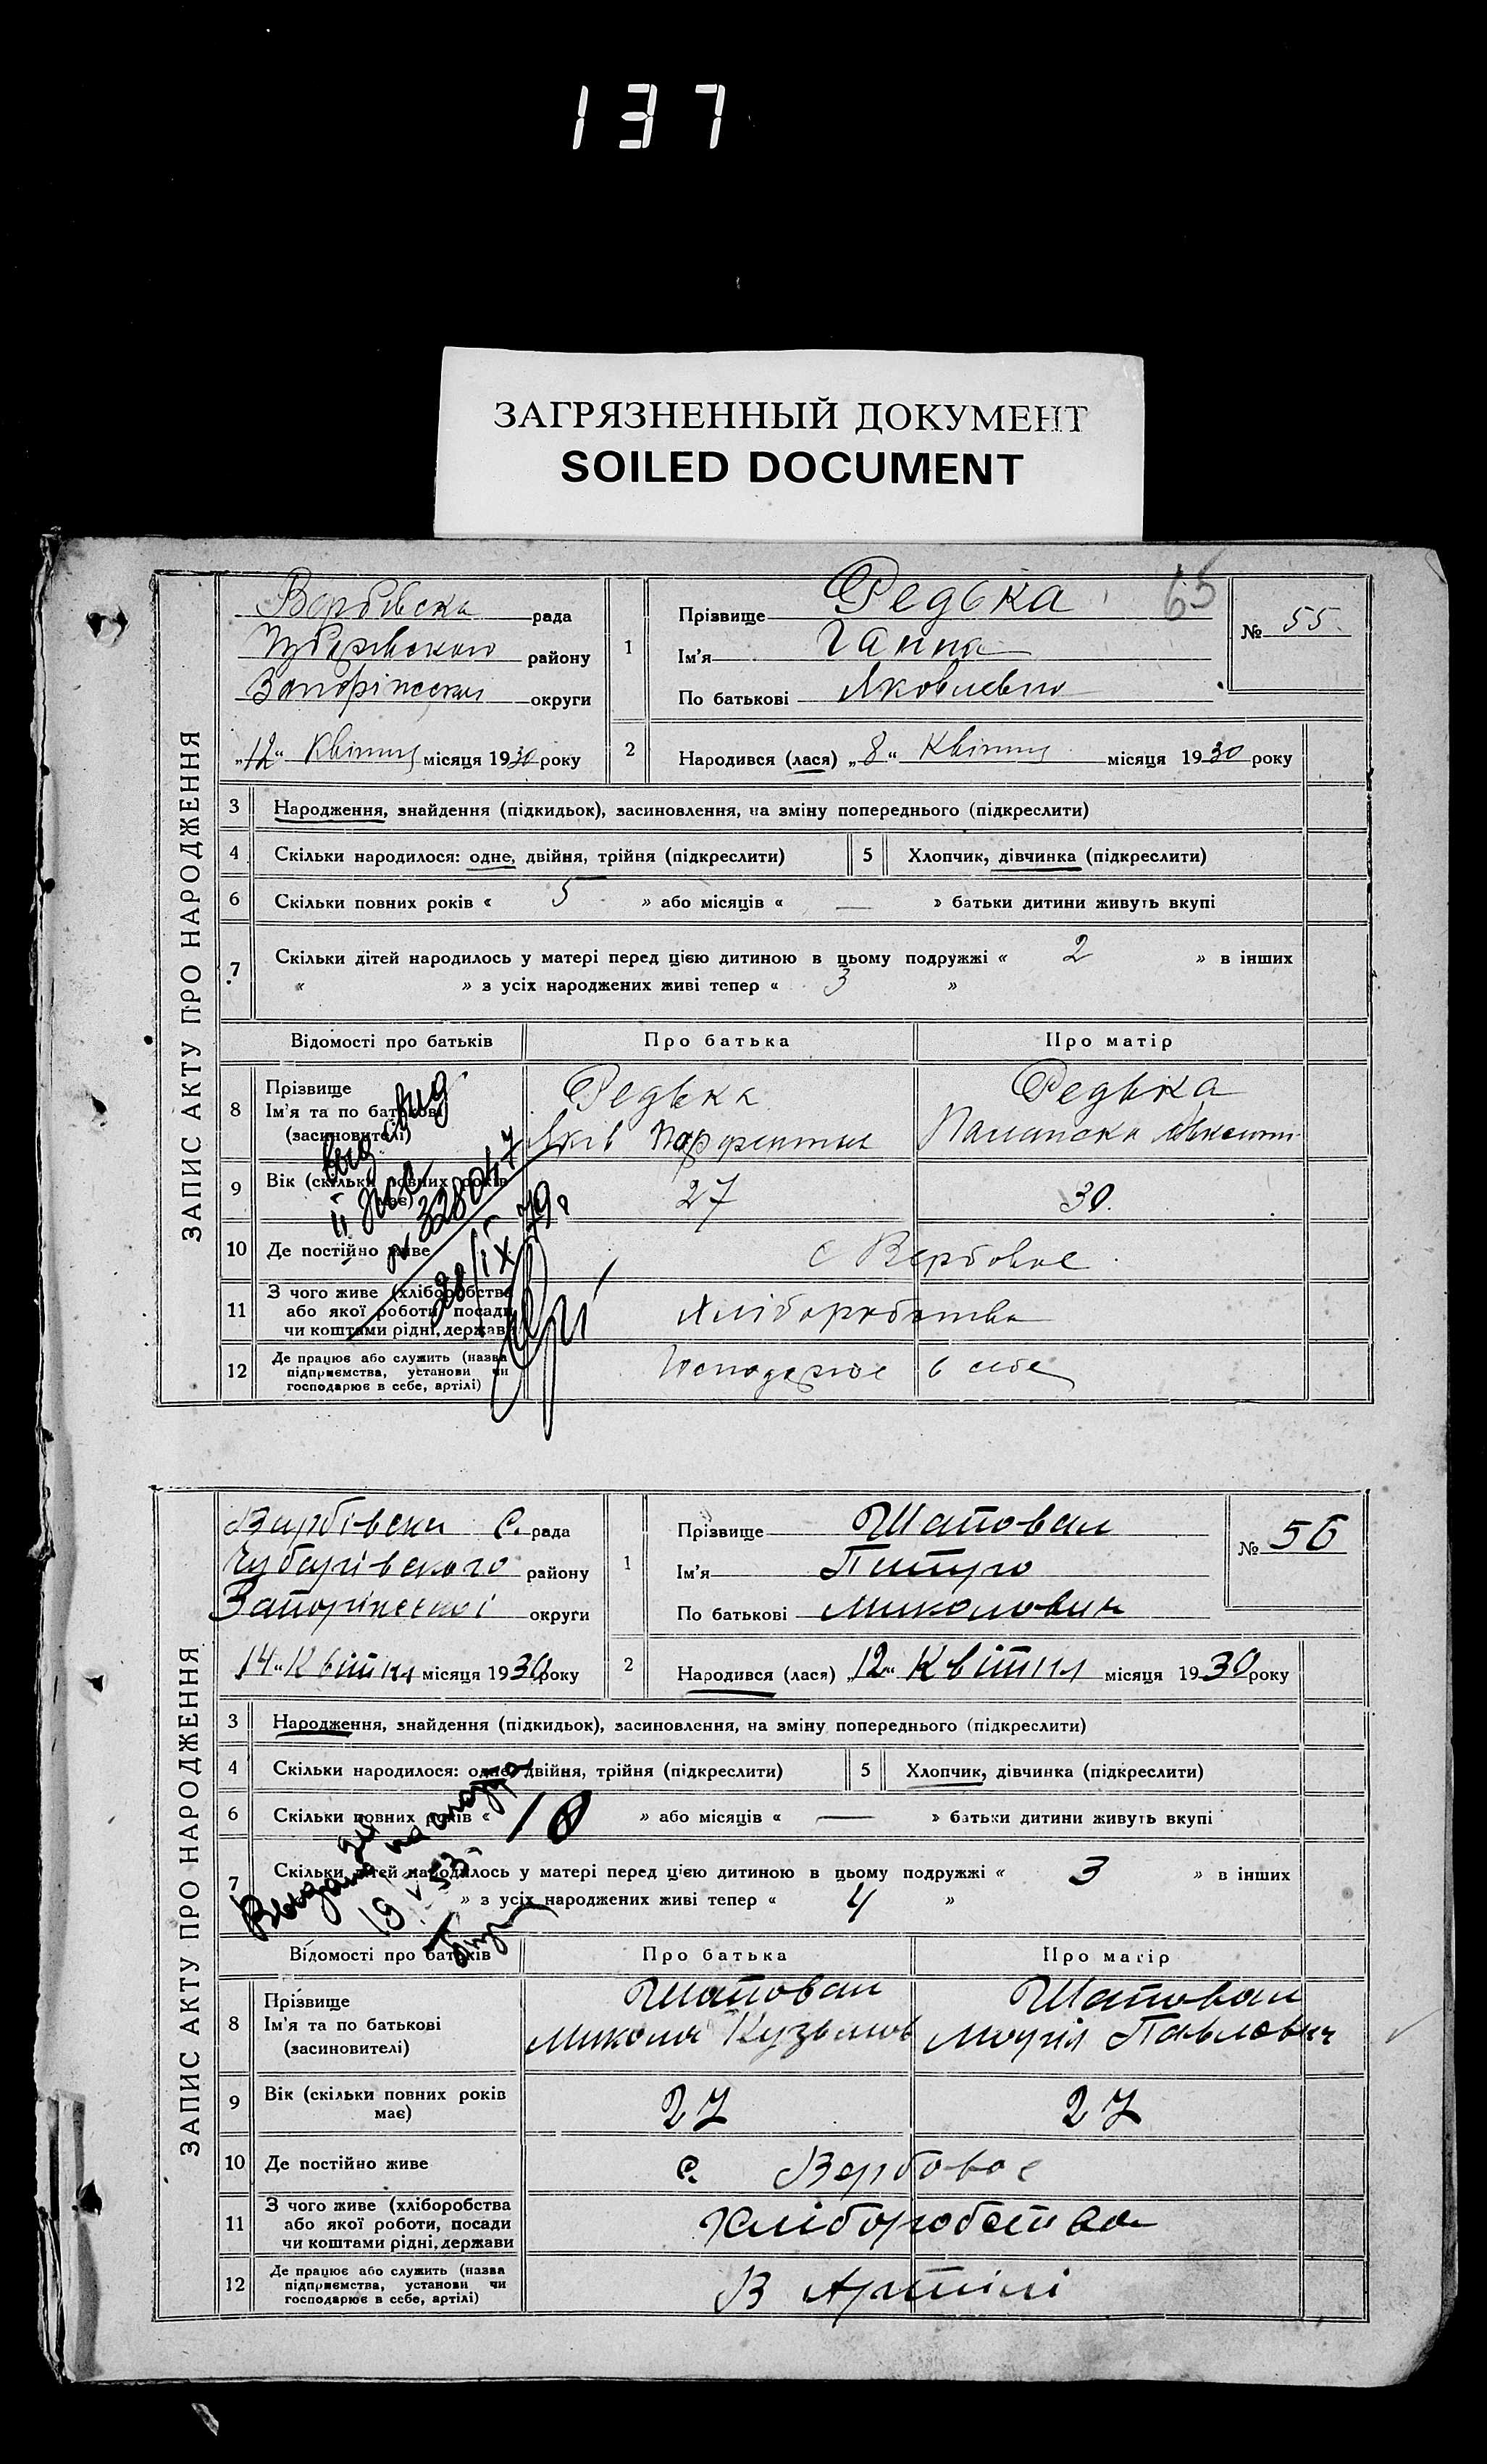 137
ЗАГРЯЗНЕННЫЙ ДОКУМЕНТ
SOILED DOCUMENT
65
ЗАПИС АКТУ ПРО НАРОДЖЕННЯ
Вербівська рада
Чубарівського району
Запоріжської округи
„12“ Квітня місяця 1930 року
1
Прізвище Редька
Ім'я Ганна
По батькові Яковлевно
№ 55
2
Народився (лася) „8“ Квітня місяця 1930 року
3 Народження, знайдення (підкидьок), засиновлення, на зміну попереднього (підкреслити)
4 Скільки народилося: одне, двійня, трійня (підкреслити) 5 Хлопчик, дівчинка (підкреслити)
6 Скільки повних років « 5 » або місяців « — » батьки дитини живуть вкупі
7 Скільки дітей народилось у матері перед цією дитиною в цьому подружжі « 2 » в інших
« » з усіх народжених живі тепер « 3 »
Відомості про батьків Про батька Про матір
8 Прізвище
Ім'я та по батькові
(засиновителі)
Редька
Яків
Редька
9 Вік (скільки повних років має) 27 30.
10 Де постійно живе с Вербовое
11 З чого живе (хліборобства
або якої роботи, посади
чи коштами рідні, держави
хліборобства
12 Де працює або служить (назва
підприємства, установи чи
господарює в себе, артілі)
Господарює в себе
28/IX 79г
ЗАПИС АКТУ ПРО НАРОДЖЕННЯ
Вирбівска С. рада
Чубарівского району
Запоріжскої округи
14“ Квітня місяця 1930 року
1
Прізвище Шаповал
Ім'я Питро
По батькові Миколович
№ 56
2
Народився (лася) „12“ Квітня місяця 1930 року
3 Народження, знайдення (підкидьок), засиновлення, на зміну попереднього (підкреслити)
4 Скільки народилося: одне, двійня, трійня (підкреслити) 5 Хлопчик, дівчинка (підкреслити)
6 Скільки повних років « 10 » або місяців « — » батьки дитини живуть вкупі
7 Скільки дітей народилось у матері перед цією дитиною в цьому подружжі « 3 » в інших
» з усіх народжених живі тепер « 4 »
19 V 53
Відомості про батьків Про батька Про матір
8 Прізвище
Ім'я та по батькові
(засиновителі)
Шаповал
Микола Кузьмов
Шаповал
Марія Павлович
9 Вік (скільки повних років
має)
27 27
10 Де постійно живе с. Вербовое
11 З чого живе (хліборобства
або якої роботи, посади
чи коштами рідні, держави
Хліборобства
12 Де працює або служить (назва
підприємства, установи чи
господарює в себе, артілі)
В Артілі